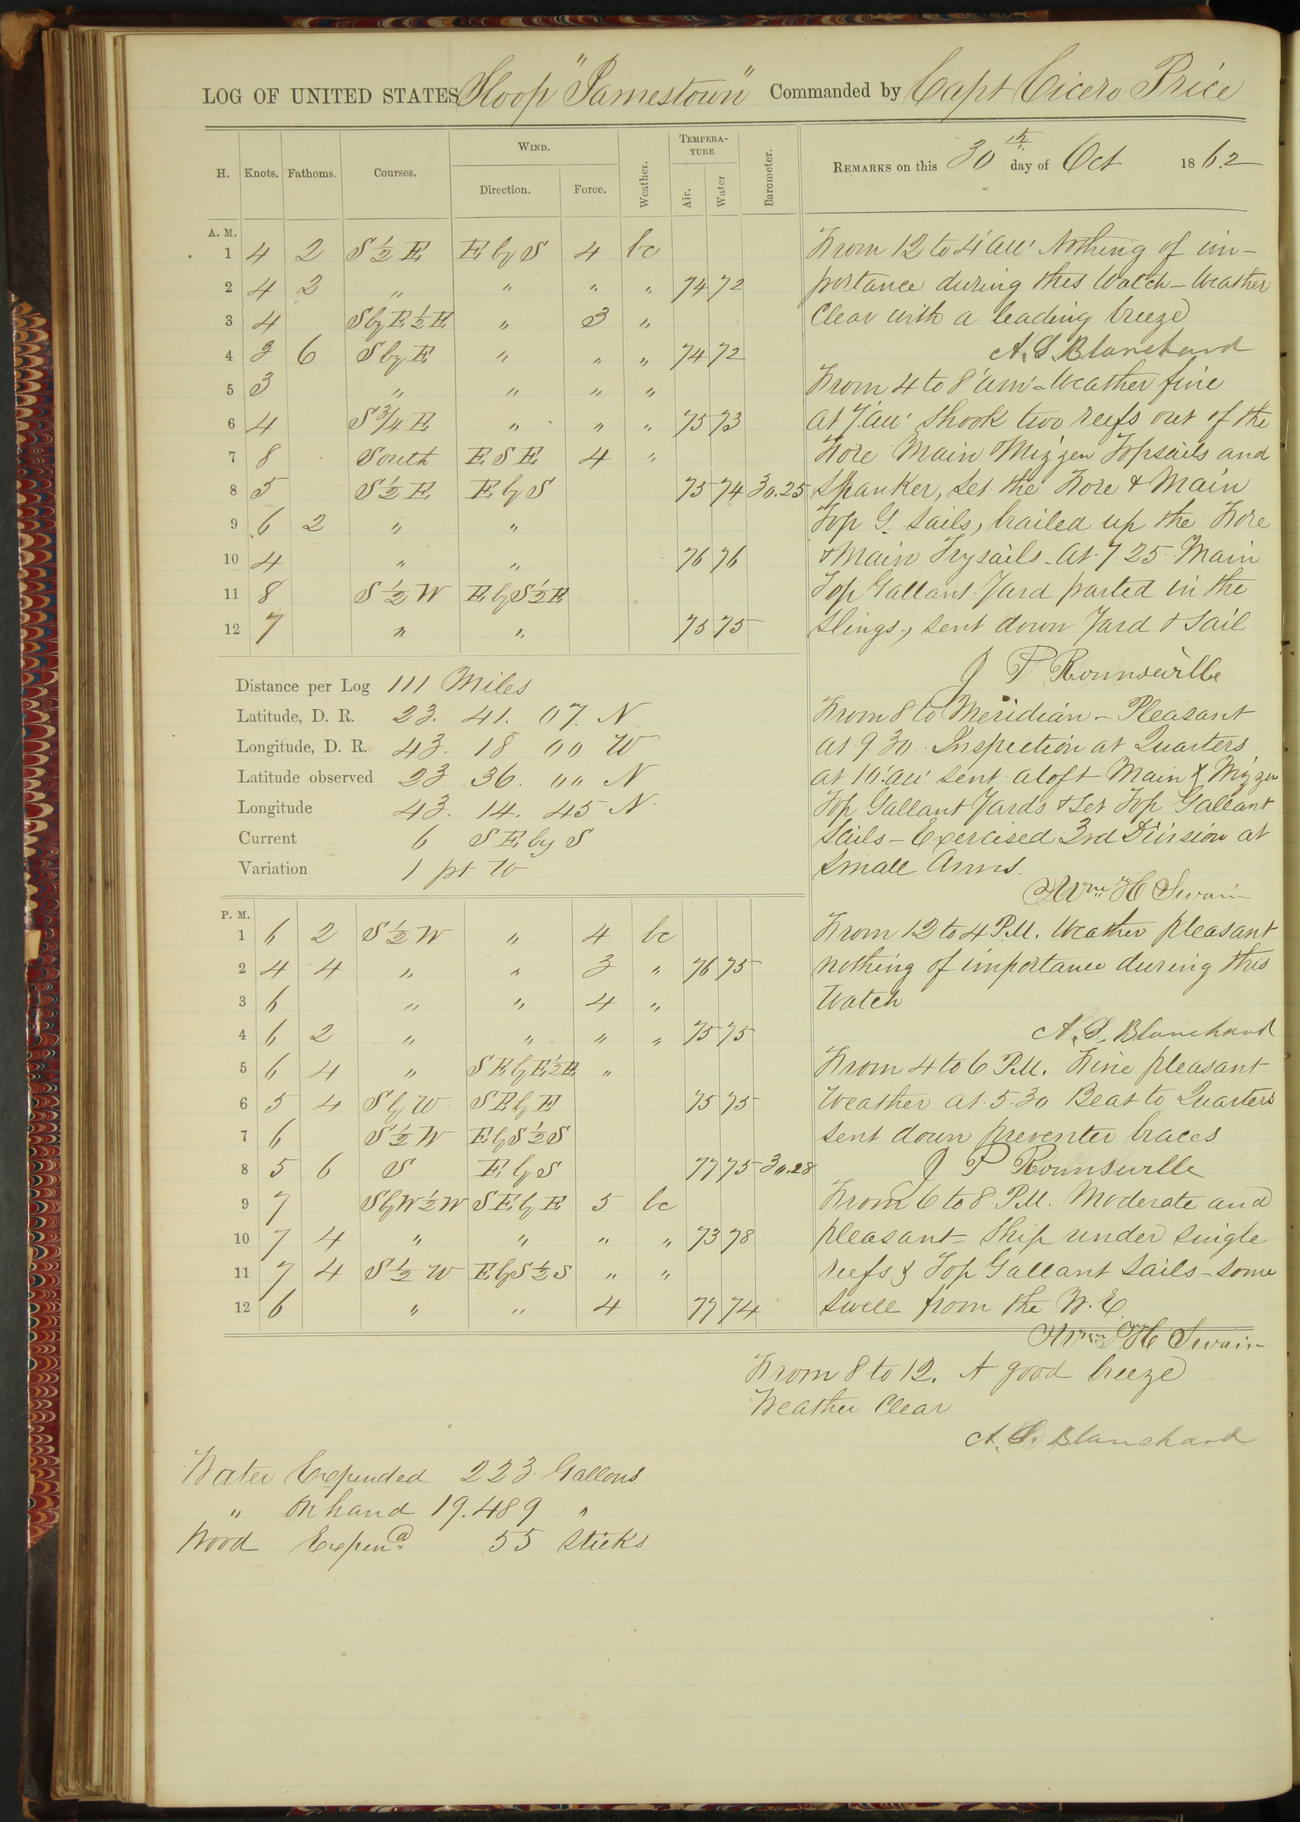 LOG OF UNITED STATES Sloop "Jamestown" Commanded by Capt Cicero Price
H. Knots. Fathoms. Courses. WIND. Direction. Force. Weather. TEMPERATURE. Air. Water Barometer. REMARKS on this 30th day of Oct 1862
A. M.
1 4 2 S ½ E E by S 4 bc
2 4 2 " " " " 74 72
3 4 S by E ½ E " 3 "
4 3 6 S by E " " " 74 72
5 3 " " " "
6 4 S ¾ E " " " 75 73
7 8 South E S E 4 "
8 5 S ½ E E by S 75 74 30.25
9 6 2 " "
10 4 " " 76 76
11 8 S ½ W E by S ½ E
12 7 " " 75 75
Distance per Log 111 Miles
Latitude, D. R. 23. 41. 07. N
Longitude, D. R. 43. 18 00 W
Latitude observed 23 36. 00 N
Longitude 43. 14. 45 N.
Current 6 S E by S
Variation 1 pt W
P. M.
1 6 2 S ½ W " 4 bc
2 4 4 " " 3 " 76 75
3 6 " " 4 "
4 6 2 " " " " 75 75
5 6 4 " S E by E ½ E "
6 5 4 S by W S E by E 75 75
7 6 S ½ W E by S ½ S
8 5 6 S E by S 77 75 30.28
9 7 S by W ½ W S E by E 5 bc
10 7 4 " " " " 73 78
11 7 4 S ½ W E by S ½ S " "
12 6 " " 4 77 74
From 12 to 4 AM. Nothing of im-
portance during this Watch - Weather
Clear with a leading breeze
A. S. Blanchard
From 4 to 8 am - Weather fine
at 7. AM. Shook two reefs out of the
Fore Main Mizzen Topsails and
Spanker, set the Fore & Main
Top G. Sails, brailed up the Fore
& Main Trysails. At 7 25. Main
Top Gallant Yard parted in the
Slings, sent down Yard & Sail
J P Rounsville
From 8 to Meridian - Pleasant
at 9 30. Inspection at Quarters
at 10. AM. sent aloft Main & Mizzen
Top Gallant Yards & Set Top Gallant
Sails - Exercised 3rd Division at
Small Arms.
Wm H Swain
From 12 to 4 P.M. Weather pleasant
nothing of importance during this
Watch
A. S. Blanchard
From 4 to 6 P.M. Fine pleasant
Weather at 5.30 Beat to Quarters
sent down preventer braces
J P Rounsville
From 6 to 8 P.M. Moderate and
pleasant - Ship under single
reefs & Top Gallant Sails - some
swell from the N. E.
Wm H Swain
From 8 to 12. A good breeze
Weather Clear
A. S. Blanchard
Water Expended 223 Gallons
" On hand 19.489 "
Wood Expend 55 Sticks